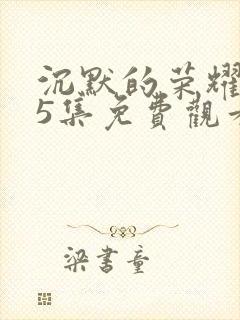 沉默的荣耀
5集免費觀
梁書童